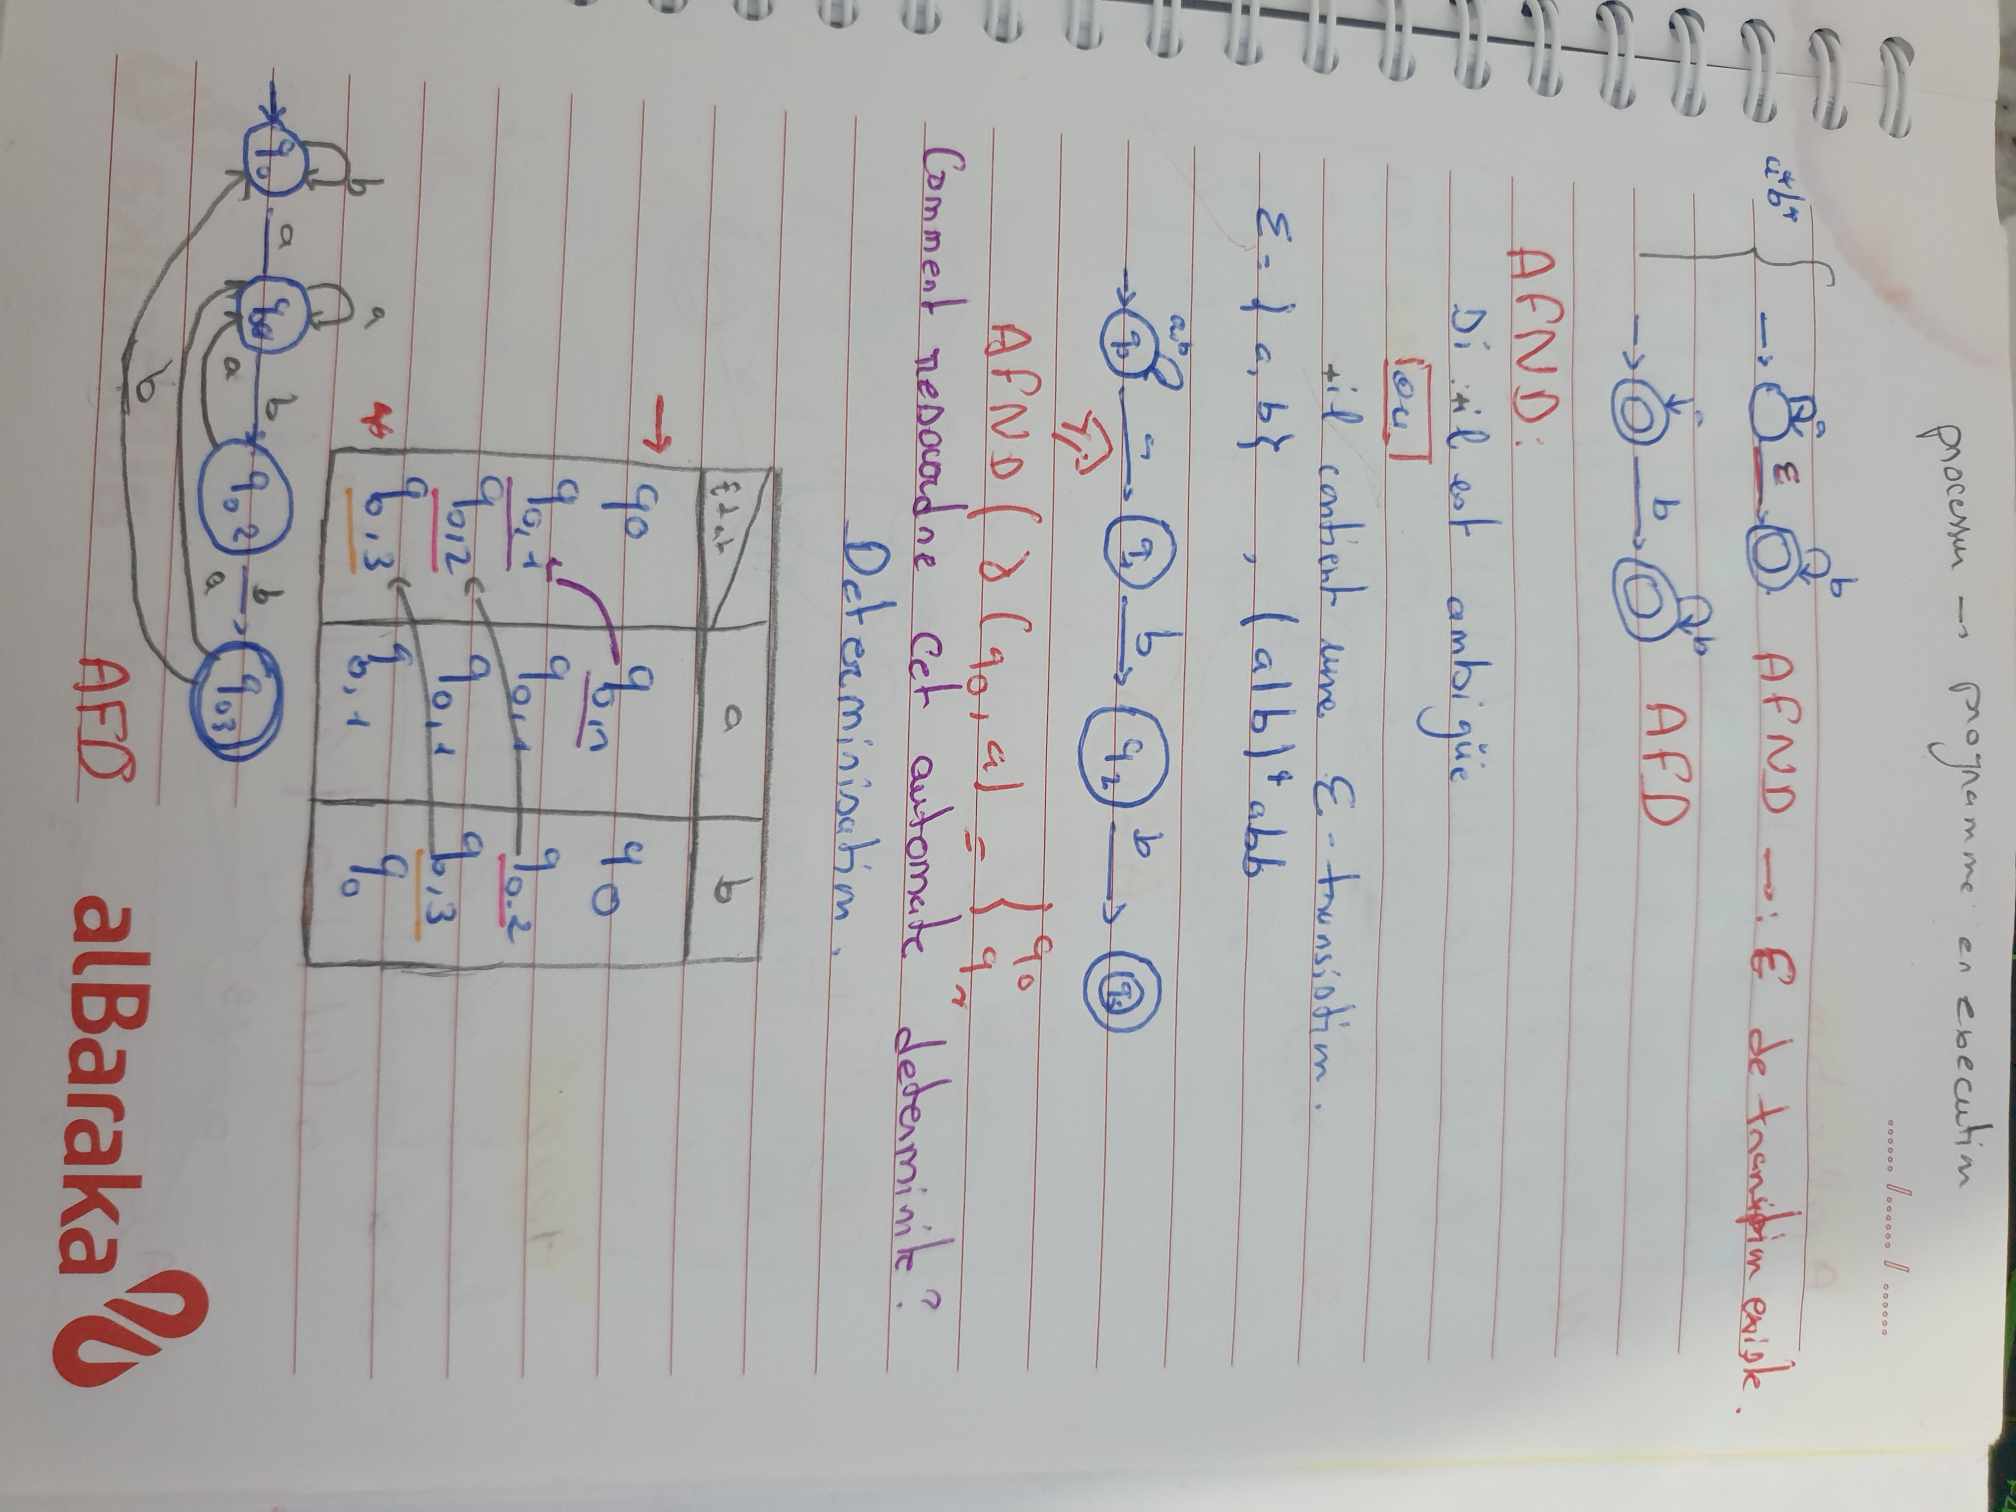 processus → programme en execution
...... / ...... / ......
a*b* a ε b AFND → : ε de transition existe.
a b b AFD
AFND:
Si +il est ambigüe
ou
+il contient une ε-transistion.
Σ = { a, b } , (a|b)* abb
→ q0 a,b a q1 b q2 b q3
AFND ( δ (q0, a) = { q0 q1
Comment cet automate determinite?
Determinisation.
Etat a b
→ q0 q0,1 q0
q0,1 q0,1 q0.2
q0,2 q0,1 q0,3
q0,3 q0,1 q0
b a
q0 a q01 b q02 b q03
a a
b
AFD
alBaraka